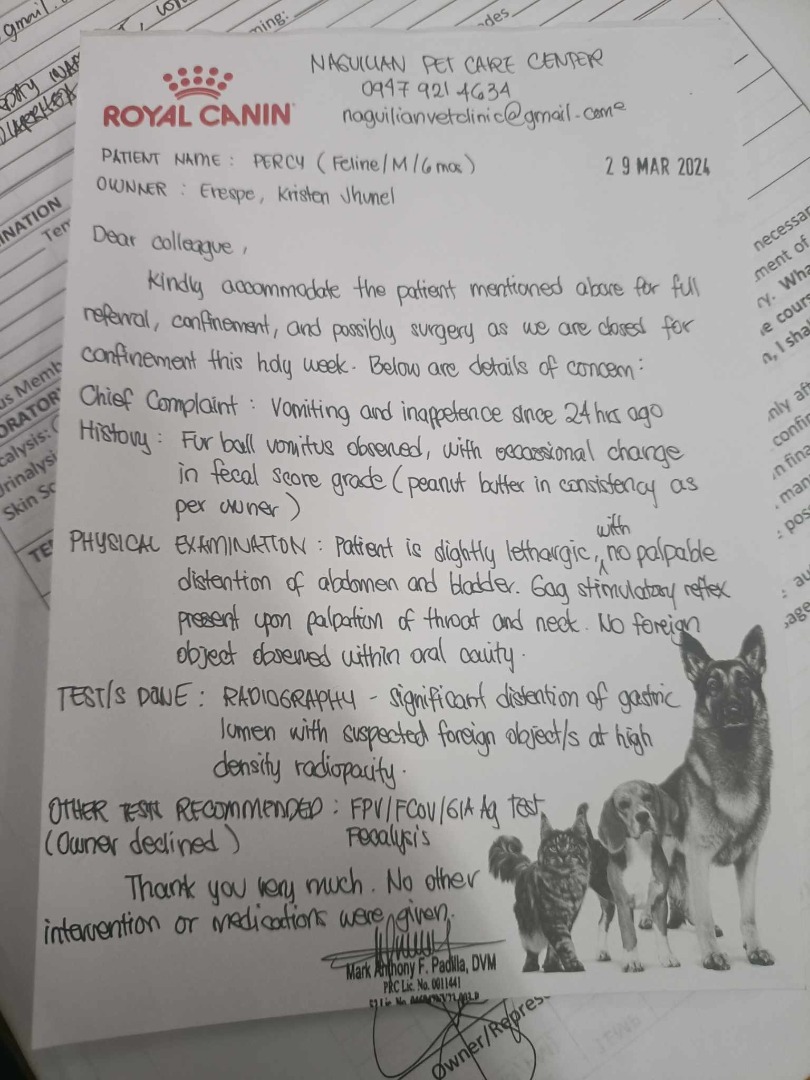 gmail.
ming:
des
NAGUILIAN PET CARE CENTER
0947 921 4634
naguilianvetclinic@gmail.com
ROYAL CANIN
PATIENT NAME : PERCY (Feline/M/6 mos)
29 MAR 2024
OWNER : Erespe, Kristen Jhunel
Dear colleague,
Kindly accommodate the patient mentioned above for full
referral, confinement, and possibly surgery as we are closed for
confinement this holy week. Below are details of concern:
Chief Complaint : Vomiting and inappetence since 24 hrs ago
History : Fur ball vomitus observed, with occassional change
in fecal score grade (peanut butter in consistency as
per owner)
PHYSICAL EXAMINATION : Patient is slightly lethargic, with no palpable
distention of abdomen and bladder. Gag stimulatory reflex
present upon palpation of throat and neck. No foreign
object observed within oral cavity.
TEST/S DONE : RADIOGRAPHY - significant distention of gastric
lumen with suspected foreign object/s at high
density radiopacity.
OTHER TESTS RECOMMENDED : FPV/FCoV/GIA Ag Test
(Owner declined) Fecalysis
Thank you very much. No other
intervention or medications were given.
Mark Anthony F. Padilla, DVM
PRC Lic. No. 0011441
Owner/Repres
INATION
Tem
us Memb
ORATOR
calysis:
Urinalysi
Skin Sc
TE
necessar
ment of
ry. Wha
e cours
n, I sha
nly aft
confir
n fina
man
pos
au
age